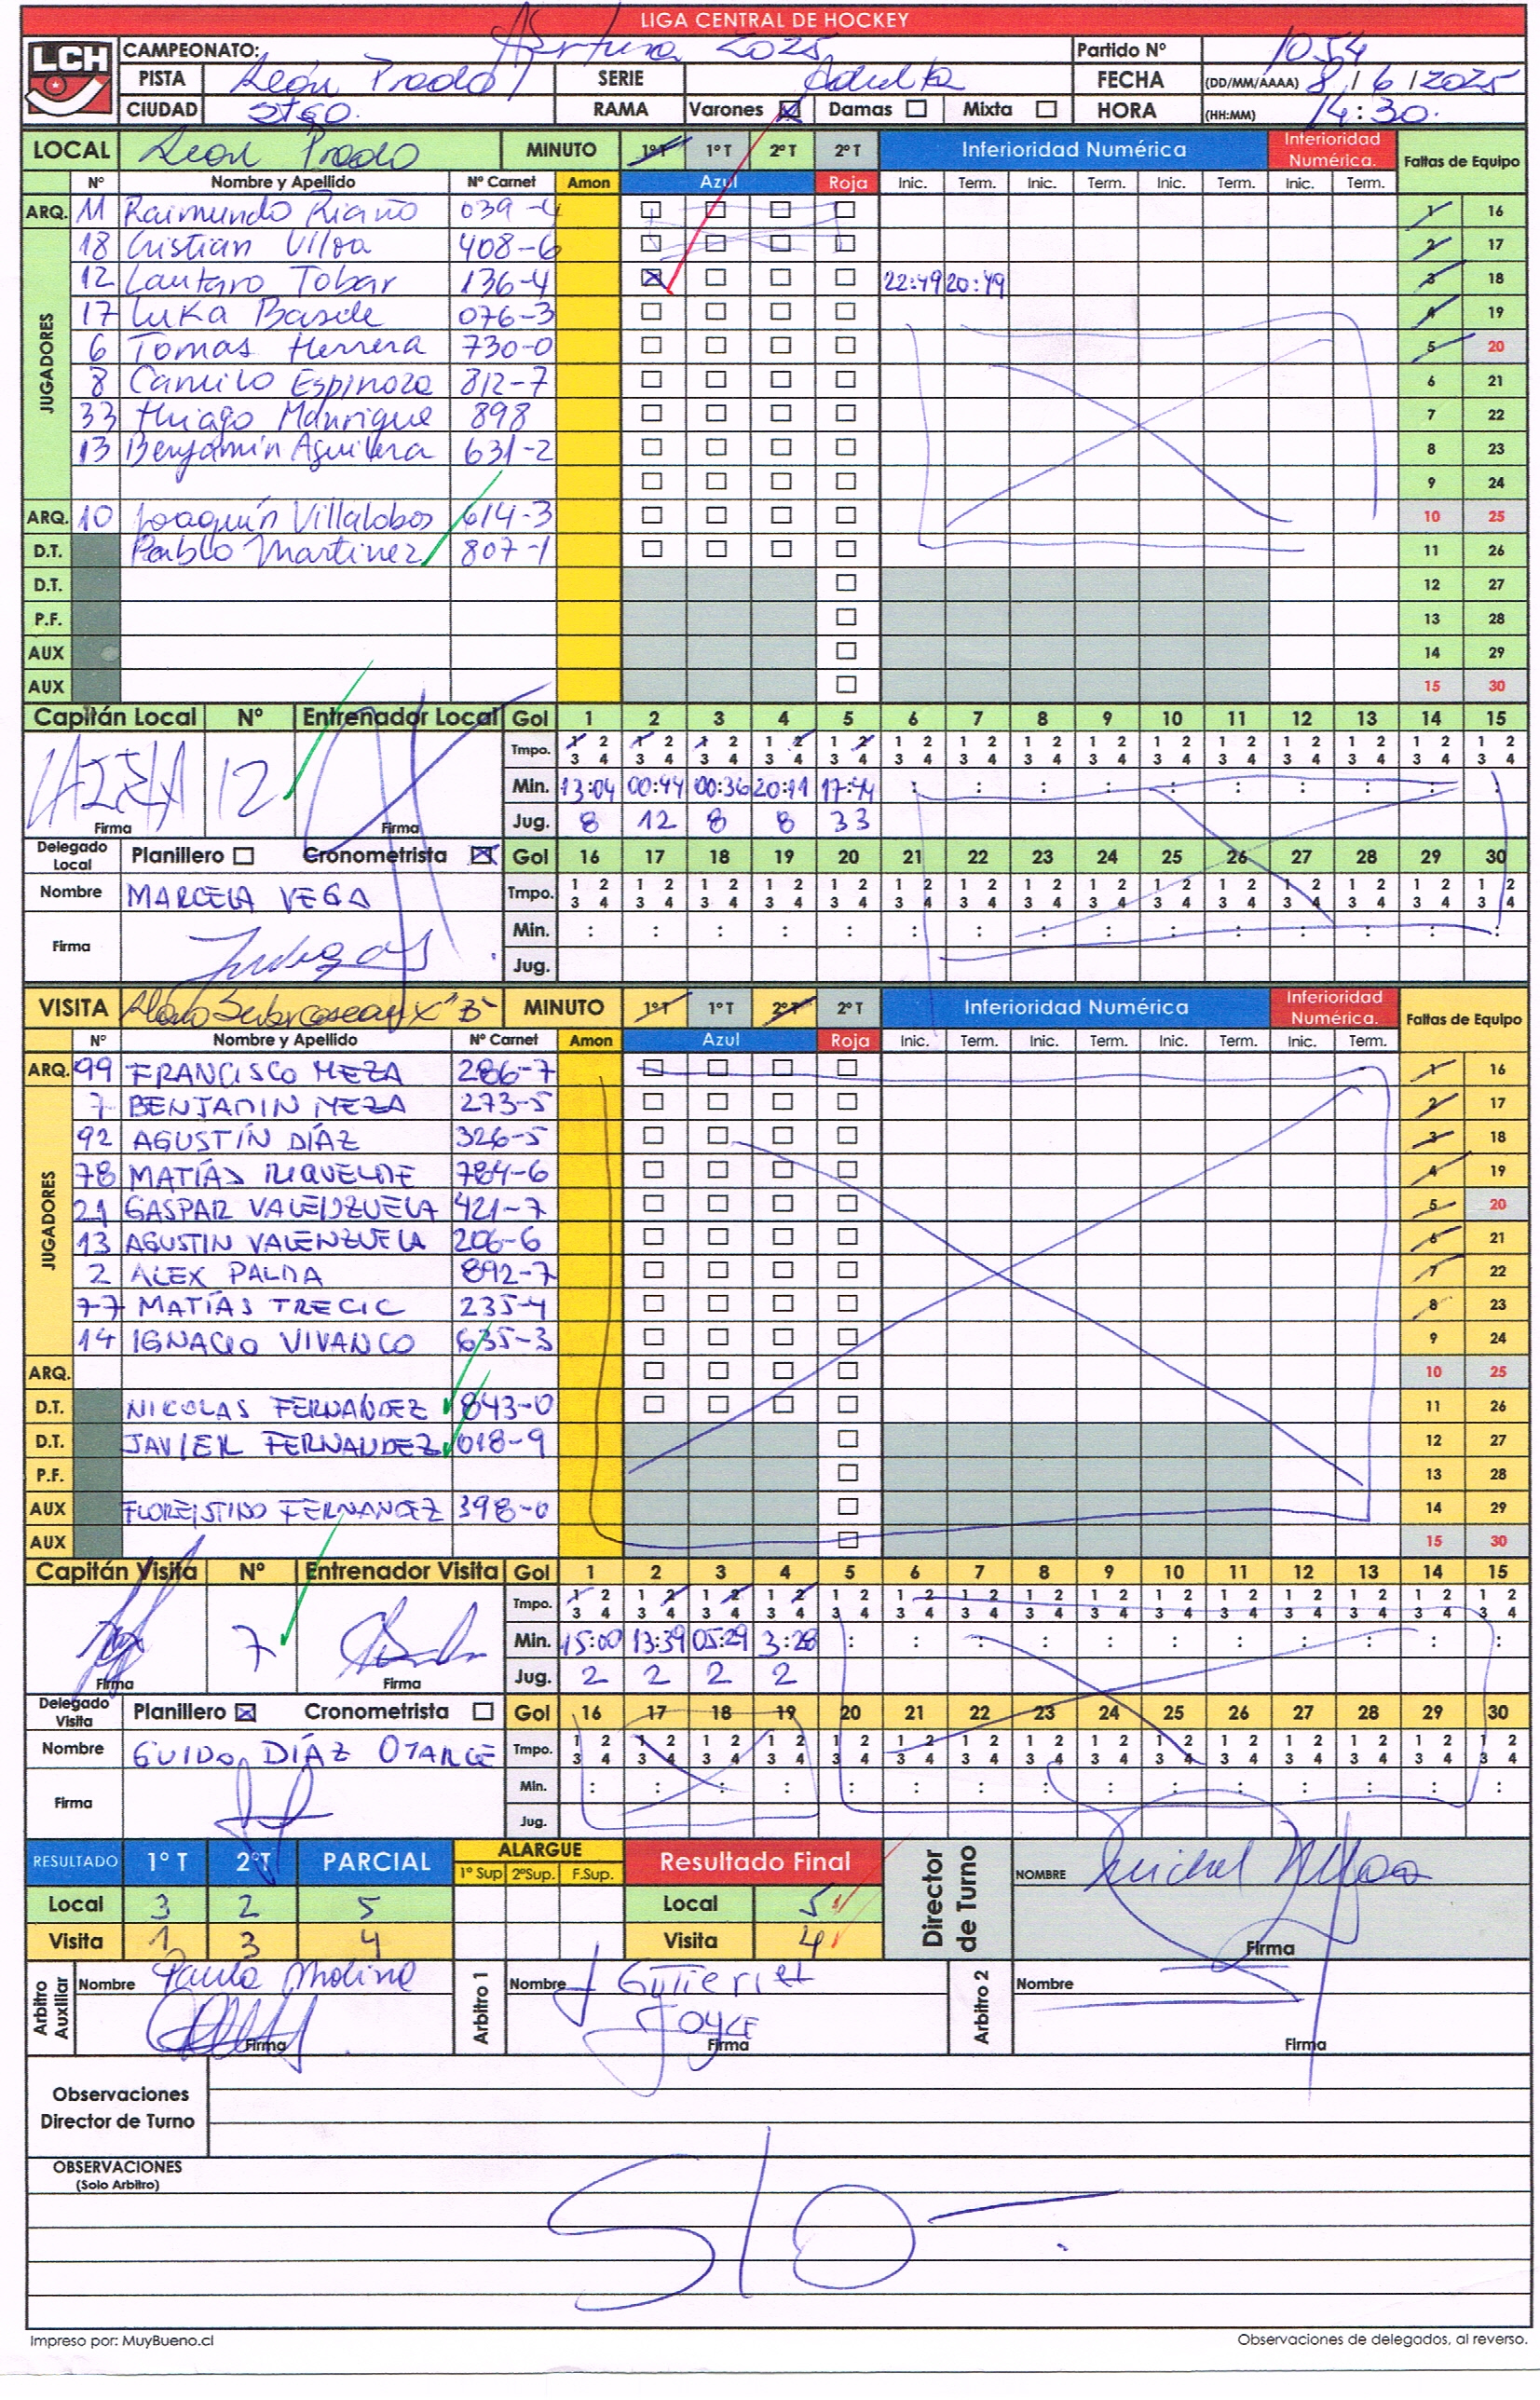 LIGA CENTRAL DE HOCKEY
LCH
CAMPEONATO: Apertura 2025 Partido Nº 1054
PISTA León Prado SERIE Adulta FECHA (DD/MM/AAAA) 8/6/2025
CIUDAD STGO. RAMA Varones Damas Mixta HORA (HH:MM) 14:30.
LOCAL León Prado MINUTO 1ºT 1ºT 2ºT 2ºT Inferioridad Numérica Inferioridad Numérica. Faltas de Equipo
Nº Nombre y Apellido Nº Carnet Amon Azul Roja Inic. Term. Inic. Term. Inic. Term. Inic. Term.
JUGADORES
ARQ. 11 Raimundo Riaño 039-4 1 16
18 Cristian Ulloa 408-6 2 17
12 Lautaro Tobar 136-4 22:49 20:49 3 18
17 Luka Basde 076-3 4 19
6 Tomas Herrera 730-0 5 20
8 Camilo Espinoza 812-7 6 21
33 Thiago Manrique 898 7 22
13 Benjamín Aguilera 631-2 8 23
9 24
ARQ. 10 Joaquín Villalobos 614-3 10 25
D.T. Pablo Martinez 807-1 11 26
D.T. 12 27
P.F. 13 28
AUX 14 29
AUX 15 30
Capitán Local Nº Entrenador Local Gol 1 2 3 4 5 6 7 8 9 10 11 12 13 14 15
Tmpo. 1 2 1 2 1 2 1 2 1 2 1 2 1 2 1 2 1 2 1 2 1 2 1 2 1 2 1 2 1 2
3 4 3 4 3 4 3 4 3 4 3 4 3 4 3 4 3 4 3 4 3 4 3 4 3 4 3 4 3 4
12 Min. 13:04 00:44 00:36 20:11 17:44 : : : : : : : : : :
Firma Firma Jug. 8 12 8 8 33
Delegado Local Planillero Cronometrista Gol 16 17 18 19 20 21 22 23 24 25 26 27 28 29 30
Nombre MARCELA VEGA Tmpo. 1 2 1 2 1 2 1 2 1 2 1 2 1 2 1 2 1 2 1 2 1 2 1 2 1 2 1 2 1 2
3 4 3 4 3 4 3 4 3 4 3 4 3 4 3 4 3 4 3 4 3 4 3 4 3 4 3 4 3 4
Firma Min. : : : : : : : : : : : : : : :
Jug.
VISITA MINUTO 1ºT 1ºT 2ºT 2ºT Inferioridad Numérica Inferioridad Numérica. Faltas de Equipo
Nº Nombre y Apellido Nº Carnet Amon Azul Roja Inic. Term. Inic. Term. Inic. Term. Inic. Term.
JUGADORES
ARQ. 99 FRANCISCO MEZA 286-7 1 16
7 BENJAMIN MEZA 273-5 2 17
92 AGUSTÍN DÍAZ 326-5 3 18
78 MATÍAS RIQUELME 784-6 4 19
21 GASPAR VALENZUELA 421-7 5 20
13 AGUSTIN VALENZUELA 206-6 6 21
2 ALEX PALMA 892-7 7 22
77 MATÍAS TRECIC 235-4 8 23
14 IGNACIO VIVANCO 635-3 9 24
ARQ. 10 25
D.T. NICOLAS FERNANDEZ 843-0 11 26
D.T. JAVIER FERNANDEZ 018-9 12 27
P.F. 13 28
AUX FERNANDEZ 398-0 14 29
AUX 15 30
Capitán Visita Nº Entrenador Visita Gol 1 2 3 4 5 6 7 8 9 10 11 12 13 14 15
Tmpo. 1 2 1 2 1 2 1 2 1 2 1 2 1 2 1 2 1 2 1 2 1 2 1 2 1 2 1 2 1 2
3 4 3 4 3 4 3 4 3 4 3 4 3 4 3 4 3 4 3 4 3 4 3 4 3 4 3 4 3 4
7 Min. 15:00 13:39 05:29 3:28 : : : : : : : : : : :
Firma Firma Jug. 2 2 2 2
Delegado Visita Planillero Cronometrista Gol 16 17 18 19 20 21 22 23 24 25 26 27 28 29 30
Nombre GUIDO DÍAZ Tmpo. 1 2 1 2 1 2 1 2 1 2 1 2 1 2 1 2 1 2 1 2 1 2 1 2 1 2 1 2 1 2
3 4 3 4 3 4 3 4 3 4 3 4 3 4 3 4 3 4 3 4 3 4 3 4 3 4 3 4 3 4
Firma Min. : : : : : : : : : : : : : : :
Jug.
RESULTADO 1º T 2ºT PARCIAL ALARGUE 1º Sup 2ºSup. F.Sup. Resultado Final Director de Turno NOMBRE Michel
Local 3 2 5 Local 5
Visita 1 3 4 Visita 4 Firma
Arbitro Auxiliar Nombre Paula Molina Arbitro 1 Nombre J Gutierrez Arbitro 2 Nombre
Firma JOYCE Firma Firma
Observaciones
Director de Turno
OBSERVACIONES
(Solo Arbitro)
S/O
Impreso por: MuyBueno.cl Observaciones de delegados, al reverso.